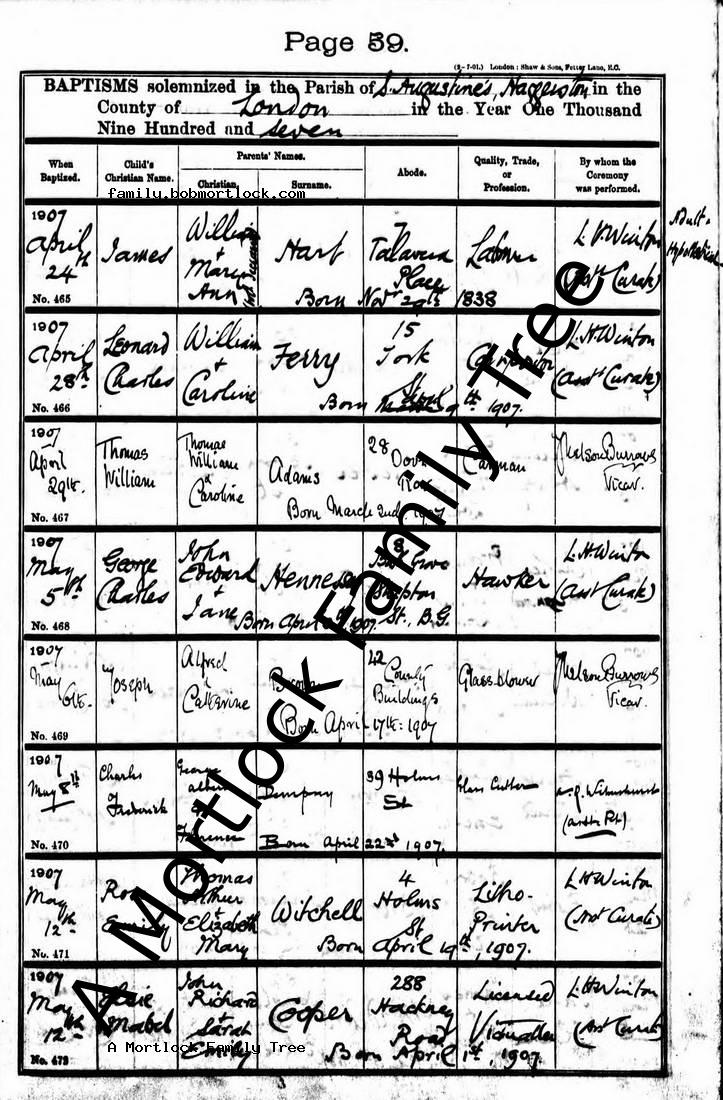 Page 59.
(2-7-01.) London: Shaw & Sons, Fetter Lane, E.C.
BAPTISMS solemnized in the Parish of S. Augustine's, Haggerston in the
County of London in the Year One Thousand
Nine Hundred and Seven
When Baptized.
Child's Christian Name.
Parents' Names.
Christian.
Surname.
Abode.
Quality, Trade, or Profession.
By whom the Ceremony was performed.
family.bobmortlock.com
1907
April 24th
No. 465
James
William
+
Mary
Ann
Hart
7
Talavera
Place
Born Nov. 29th 1838
Labourer
L H Winton
(Asst Curate)
Adult -
Hypothetical
1907
April
28th
No. 466
Leonard
Charles
William
+
Caroline
Ferry
15
York
St
Born April 9th, 1907.
L.H. Winton
(Asst Curate)
1907
April
29th.
No. 467
Thomas
William
Thomas
William
&
Caroline
Adams
28
Row
Born March 2nd. 1907
Carman
Nelson Burrows
Vicar.
1907
May
5th
No. 468
George
Charles
John
Edward
+
Jane
8
St., B.G.
Born April 1907.
Hawker
L.H. Winton
(Asst Curate)
1907
May
6th.
No. 469
Joseph
Alfred
&
Catherine
42
County
Buildings
Born April 17th: 1907
Glass blower
Nelson Burrows
Vicar.
1907
May 8th
No. 470
Charles
Frederick
George
Albert
Florence
Dempsey
39 Holms
St
Born April 22nd 1907.
Glass Cutter
1907
May
12th
No. 471
Thomas
Arthur
+
Elizabeth
Mary
Witchell
4
Holms
St
Born April 19th, 1907.
Litho-
Printer
L H Winton
(Asst Curate)
1907
May
12th
No. 472
Elsie
Mabel
John
Richard
+
Sarah
Emily
Cooper
288
Hackney
Road
Born April 1st, 1907.
Licensed
Victualler
L H Winton
(Asst Curate)
A Mortlock Family Tree
A Mortlock Family Tree